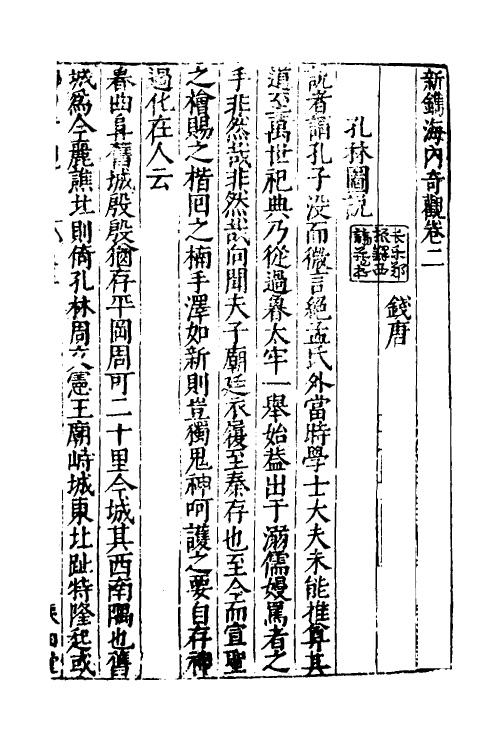 新鐫海內奇觀卷二
錢唐
孔林圖說
長樂鄭
振鐸西
諦藏書
說者謂孔子没而微言絕孟氏外當時學士大夫未能推尊其
道至萬世祀典乃從過魯太牢一舉始益出于溺儒嫚罵者之
手非然哉非然哉向聞夫子廟廷衣履至秦存也至今而宣聖
之檜賜之楷回之楠手澤如新則豈獨鬼神呵護之要自存神
過化在人云
春曲阜舊城殷殷猶存平岡周可二十里今城其西南隅也舊
城爲今麗譙北則倚孔林周文憲王廟峙城東北趾特隆起或